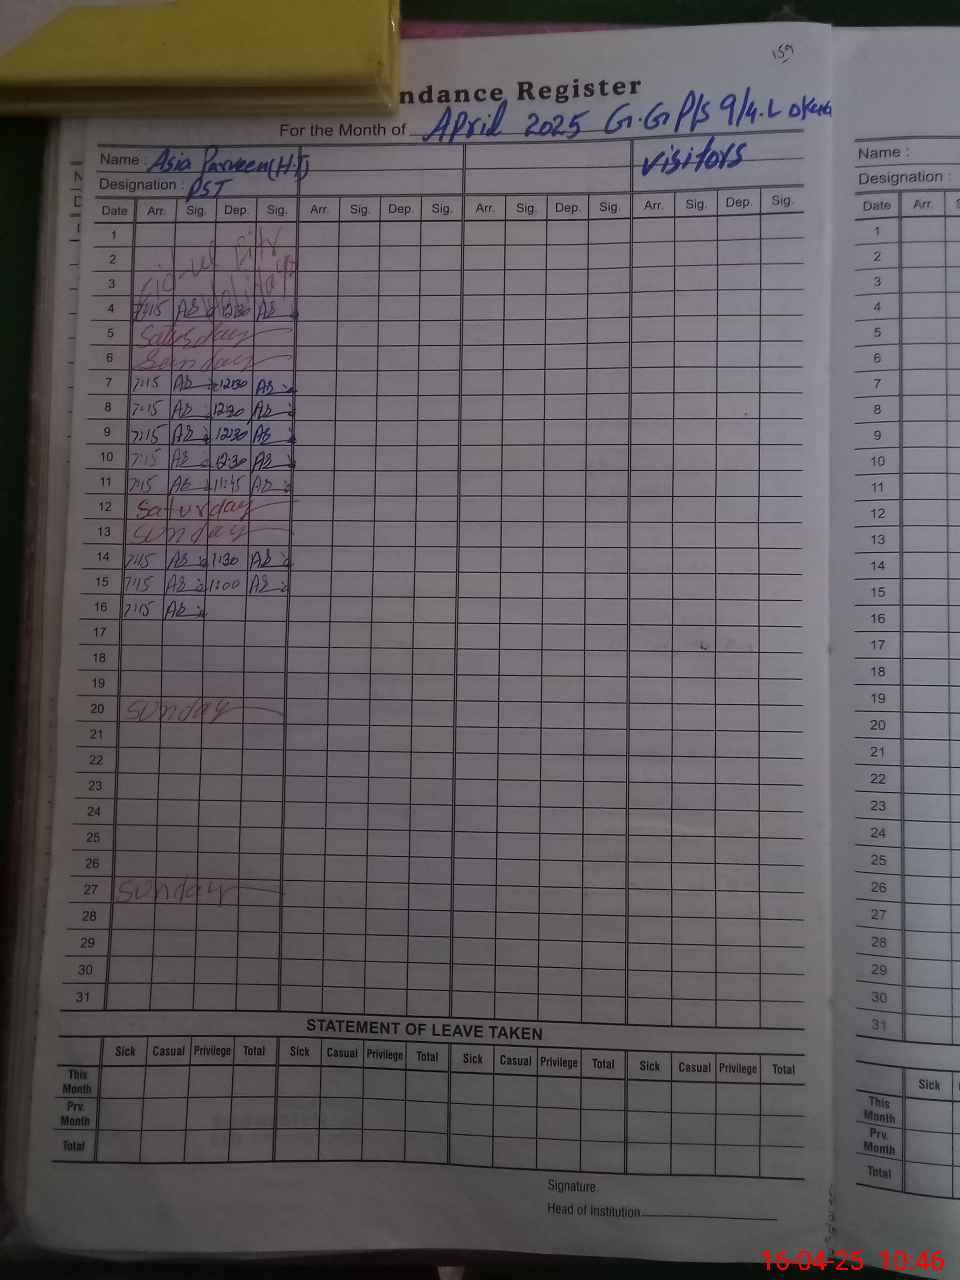 159
ndance Register
For the Month of April 2025 G.G P/s 9/4.L okara
Name : Asia Parveen (H.T) visitors
Designation : PST
Date Arr. Sig. Dep. Sig. Arr. Sig. Dep. Sig. Arr. Sig. Dep. Sig. Arr. Sig. Dep. Sig.
1
2 Eid-ul Fitr
3 Holidays
4 7:15 AS 12:30 AS
5 Saturday
6 Sunday
7 7:15 AS 12:30 AS
8 7:15 AS 12:30 AS
9 7:15 AS 12:30 AS
10 7:15 AS 12:30 AS
11 7:15 AS 11:45 AS
12 Saturday
13 Sunday
14 7:15 AS 1:30 AS
15 7:15 AS 1:00 AS
16 7:15 AS
17
18
19
20 Sunday
21
22
23
24
25
26
27 Sunday
28
29
30
31
STATEMENT OF LEAVE TAKEN
Sick Casual Privilege Total Sick Casual Privilege Total Sick Casual Privilege Total Sick Casual Privilege Total
This
Month
Prv.
Month
Total
Signature
Head of Institution
Name :
Designation :
Date Arr.
1
2
3
4
5
6
7
8
9
10
11
12
13
14
15
16
17
18
19
20
21
22
23
24
25
26
27
28
29
30
31
Sick
This
Month
Prv.
Month
Total
16-04-25 10:46